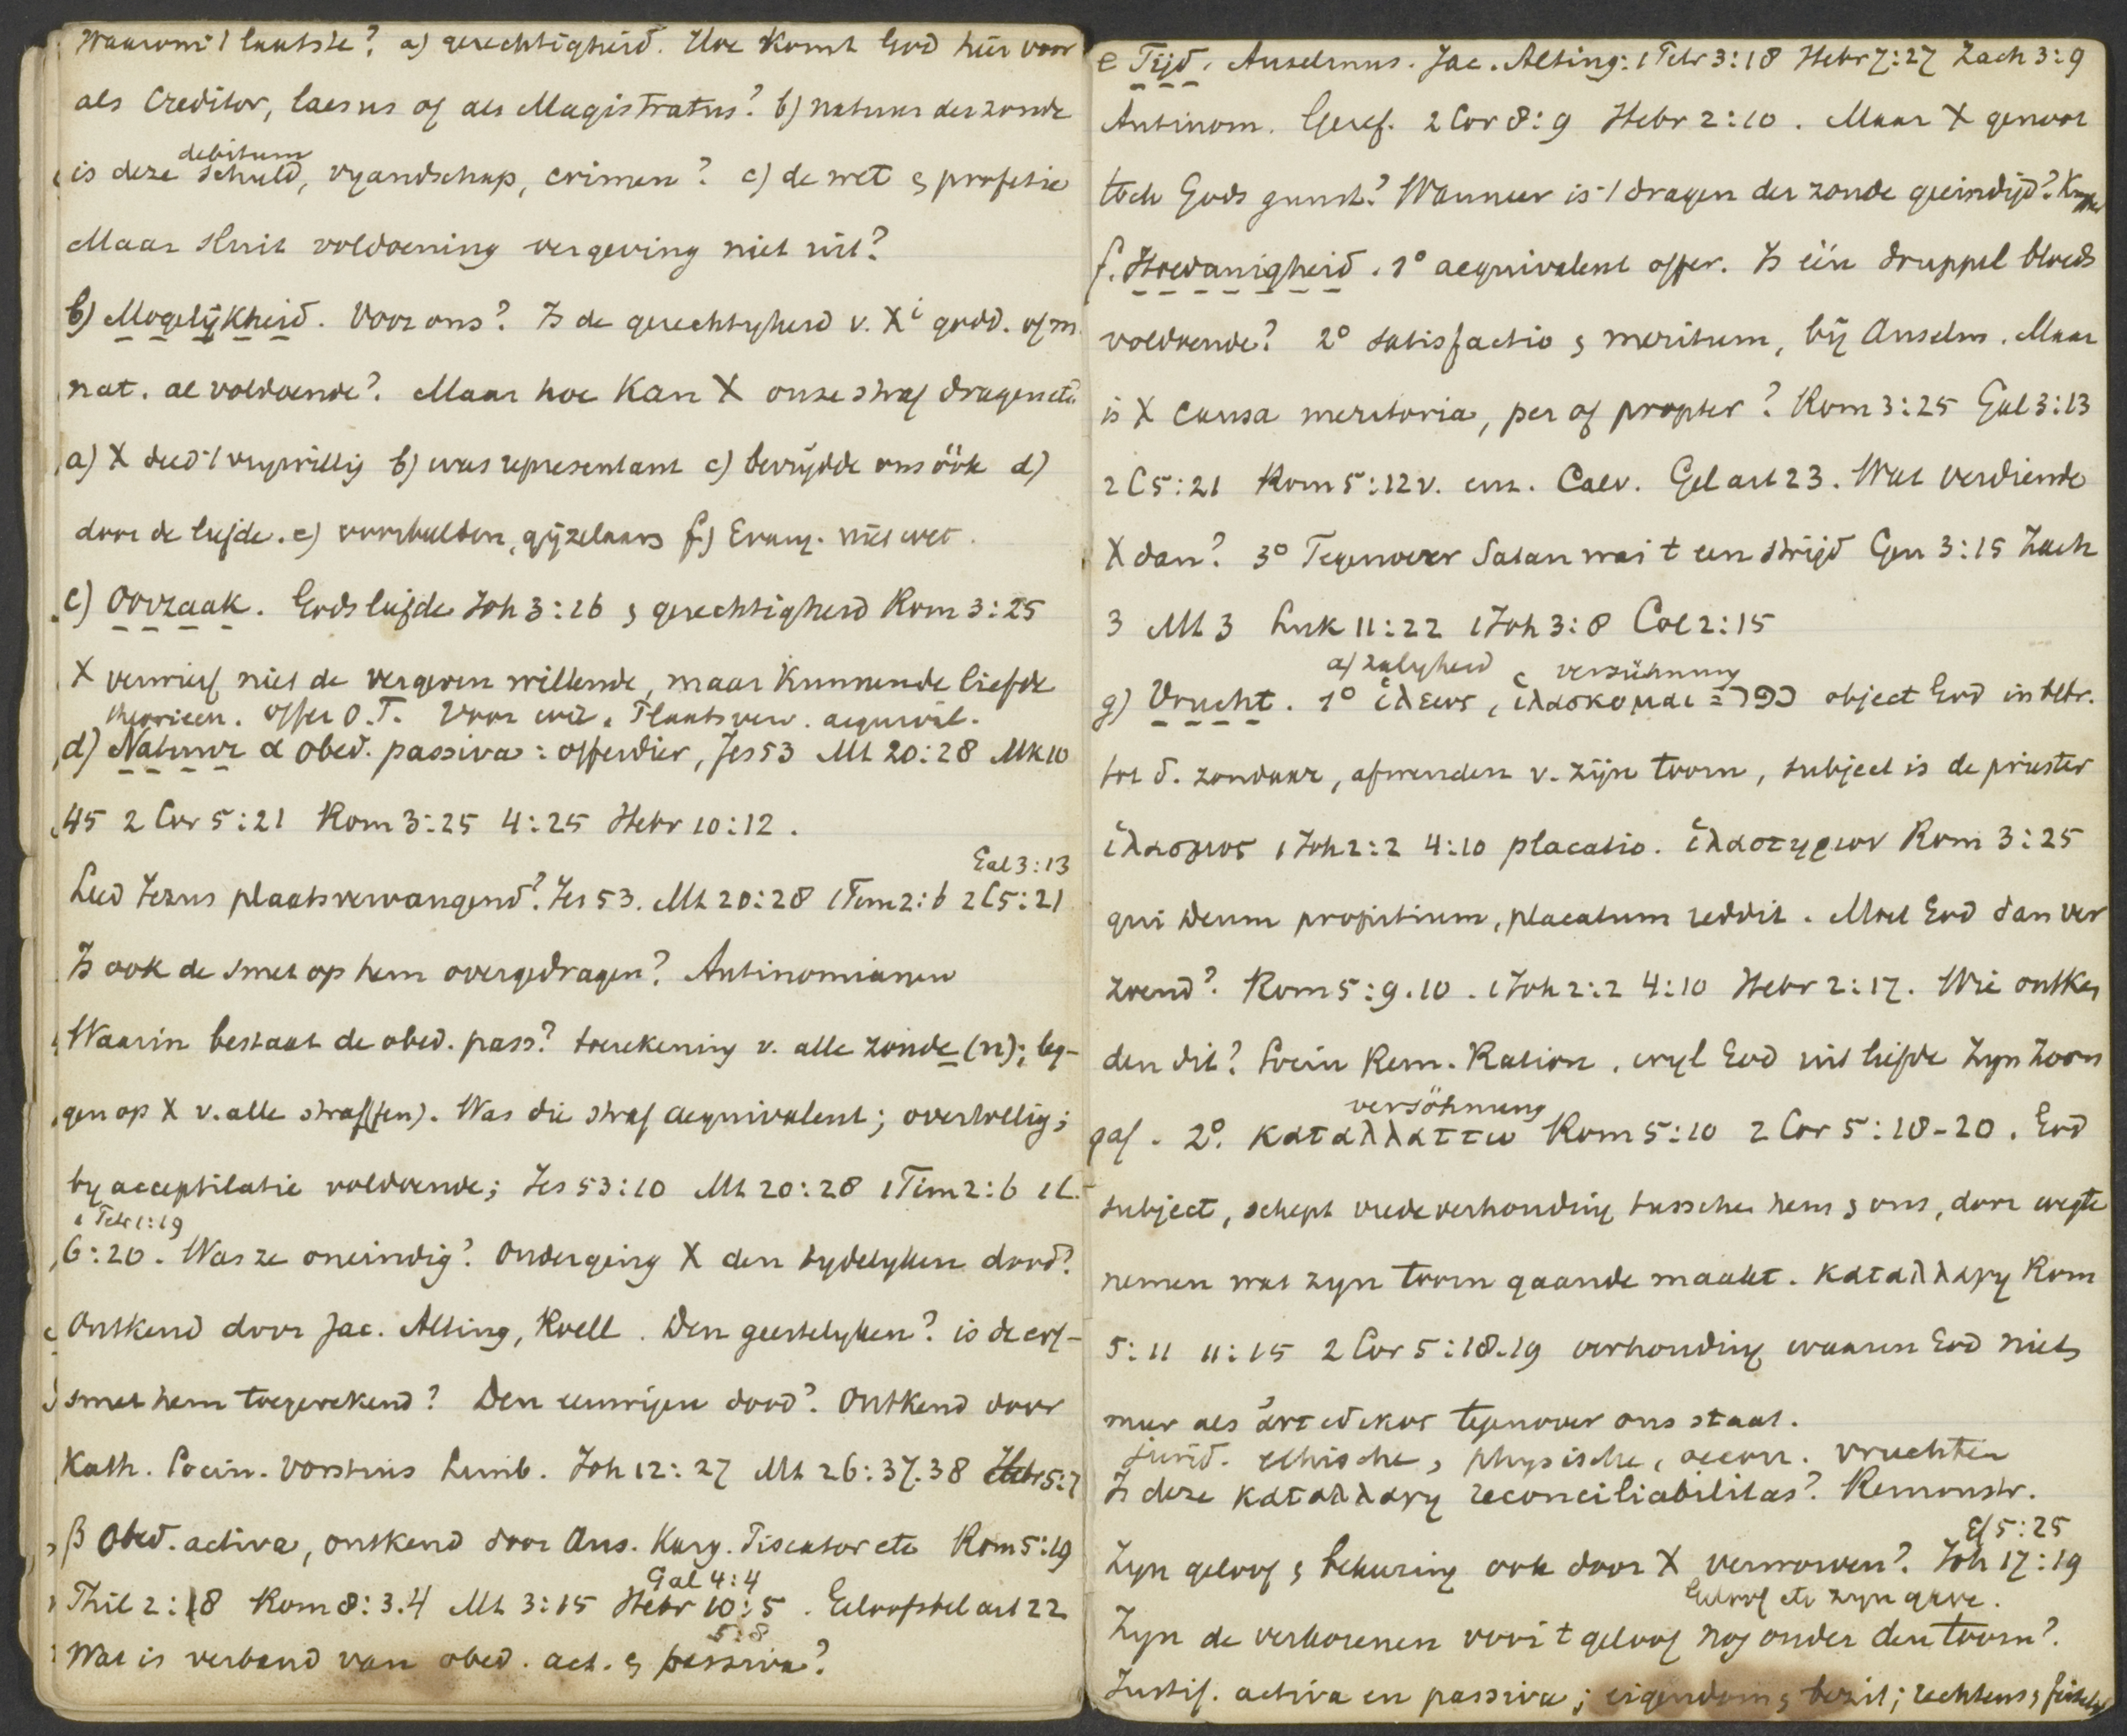 Waarom 't laatste? a) gerechtigheid. Hoe komt God hier voor
als Creditor, laesus of als Magistratus? b) natuur der zonde
debitum
is deze schuld, vyandschap, crimen? c) de wet & profetie
Maar sluit voldoening vergeving niet uit?
b) Mogelijkheid. Voor ons? Is de gerechtigheid v. Xi godd. of m.
nat. al voldoende? Maar hoe kan X onze straf dragen etc
a) X deed 't vrywillig b) was representant c) bevrijdde ons óók d)
door de liefde. e) voorbeelden, gijzelaars f) Evang. niet wet.
c) Oorzaak. Gods liefde Joh 3:16 & gerechtigheid Rom 3:25
X verwierf niet de vergeven willende, maar kunnende liefde
theorieen. Offer O.T. Voor wie. Plaatsverv. aequival.
d) Natuur α obed. passiva: offerdier, Jes 53 Mt 20:28 Mk 10
45 2 Cor 5:21 Rom 3:25 4:25 Hebr 10:12.
Gal 3:13
Leed Jezus plaatsvervangend? Jes 53. Mt 20:28 1Tim 2:6 2C5:21
Is ook de smet op hem overgedragen? Antinomianen
Waarin bestaat de obed. pass? toerekening v. alle zonde (n); leg-
gen op X v. alle straf(fen). Was die straf aequivalent; overtollig;
by acceptilatie voldoende; Jes 53:10 Mt 20:28 1Tim 2:6 1C.
1 Petr 1:19
6:20. Was ze oneindig? Onderging X den tydelyken dood?
Ontkend door Jac. Alting, Roell. Den geestelyken? is de erf-
smet hem toegerekend? Den eeuwigen dood? Ontkend door
Kath. Socin. Vorstius Limb. Joh 12:27 Mt 26:37.38 Hebr 5:7
β Obed. activa, ontkend door Ans. Karg. Piscator etc Rom 5:19
Gal 4:4
Phil 2:8 Rom 8:3.4 Mt 3:15 Hebr 10:5. Geloofsbel art 22
5:8
Wat is verband van obed. act. & passiva?
e Tijd. Anselmus. Jac. Alting: 1 Petr 3:18 Hebr 7:27 Zach 3:9
Antinom. Geref. 2 Cor 8:9 Hebr 2:10. Maar X genoot
toch Gods gunst? Wanneer is 't dragen der zonde geeindigd?
f. Hoedanigheid. 1° aequivalent offer. Is één druppel bloeds
voldoende? 2° satisfactio & meritum, bij Anselm. Maar
is X causa meritoria, per of propter? Rom 3:25 Gal 3:13
2 C 5:21 Rom 5:12 v. enz. Calv. Gel art 23. Wat verdiende
X dan? 3° Tegenover Satan was t een strijd Gen 3:15 Zach
3 Mt 3 Luk 11:22 1Joh 3:8 Col 2:15
a) zaligheid verzühnung
g) Vrucht. 1° ἱλεως, ἱλασκομαι = כפר object God in betr.
tot d. zondaar, afwenden v. zijn toorn, subject is de priester
ἱλασμος 1 Joh 2:2 4:10 placatio. ἱλαστηριον Rom 3:25
qui Deum propitium, placatum reddit. Moet God dan ver
zoend? Rom 5:9.10. 1Joh 2:2 4:10 Hebr 2:17. Wie ontken
den dit? Socin Rem. Ration. wyl God uit liefde Zyn Zoon
versöhnung
gaf. 2°. καταλλαττω Rom 5:10 2 Cor 5:18-20. God
subject, schept vredeverhouding tusschen hem & ons, door wegte
nemen wat zyn toorn gaande maakt. καταλλαγη Rom
5:11 11:15 2 Cor 5:18.19 verhouding waarin God niets
meer als ἀντιδικος tegenover ons staat.
jurid. ethische, physische, oecon. vruchten
Is deze καταλλαγη reconciliabilitas? Remonstr.
Ef 5:25
Zyn geloof & bekeering ook door X verworven? Joh 17:19
Geloof etc zyn gave.
Zyn de verkorenen voor t geloof nog onder den toorn?
Justif. activa en passiva; eigendom & bezit; rechtens &